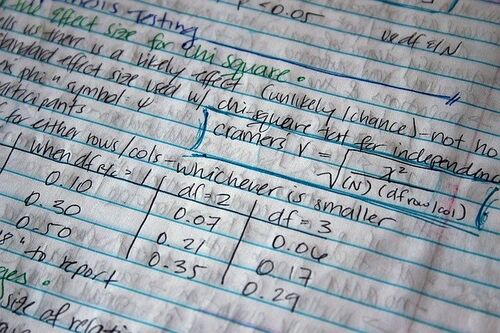 p < 0.05
hesis testing
use df & N
effect size for chi square.
lls us there is a likely effect (unlikely / chance) - not how
tandard effect size used w/ chi square test for independence
phi " symbol: φ
articipants
cramers V = √ x² / (N) (df row/col)
for either rows/cols - whichever is smaller
when df r/c = 1 df = 2 df = 3
0.10 0.07 0.06
0.30 0.21 0.17
0.50 0.35 0.29
" to report
size of relati